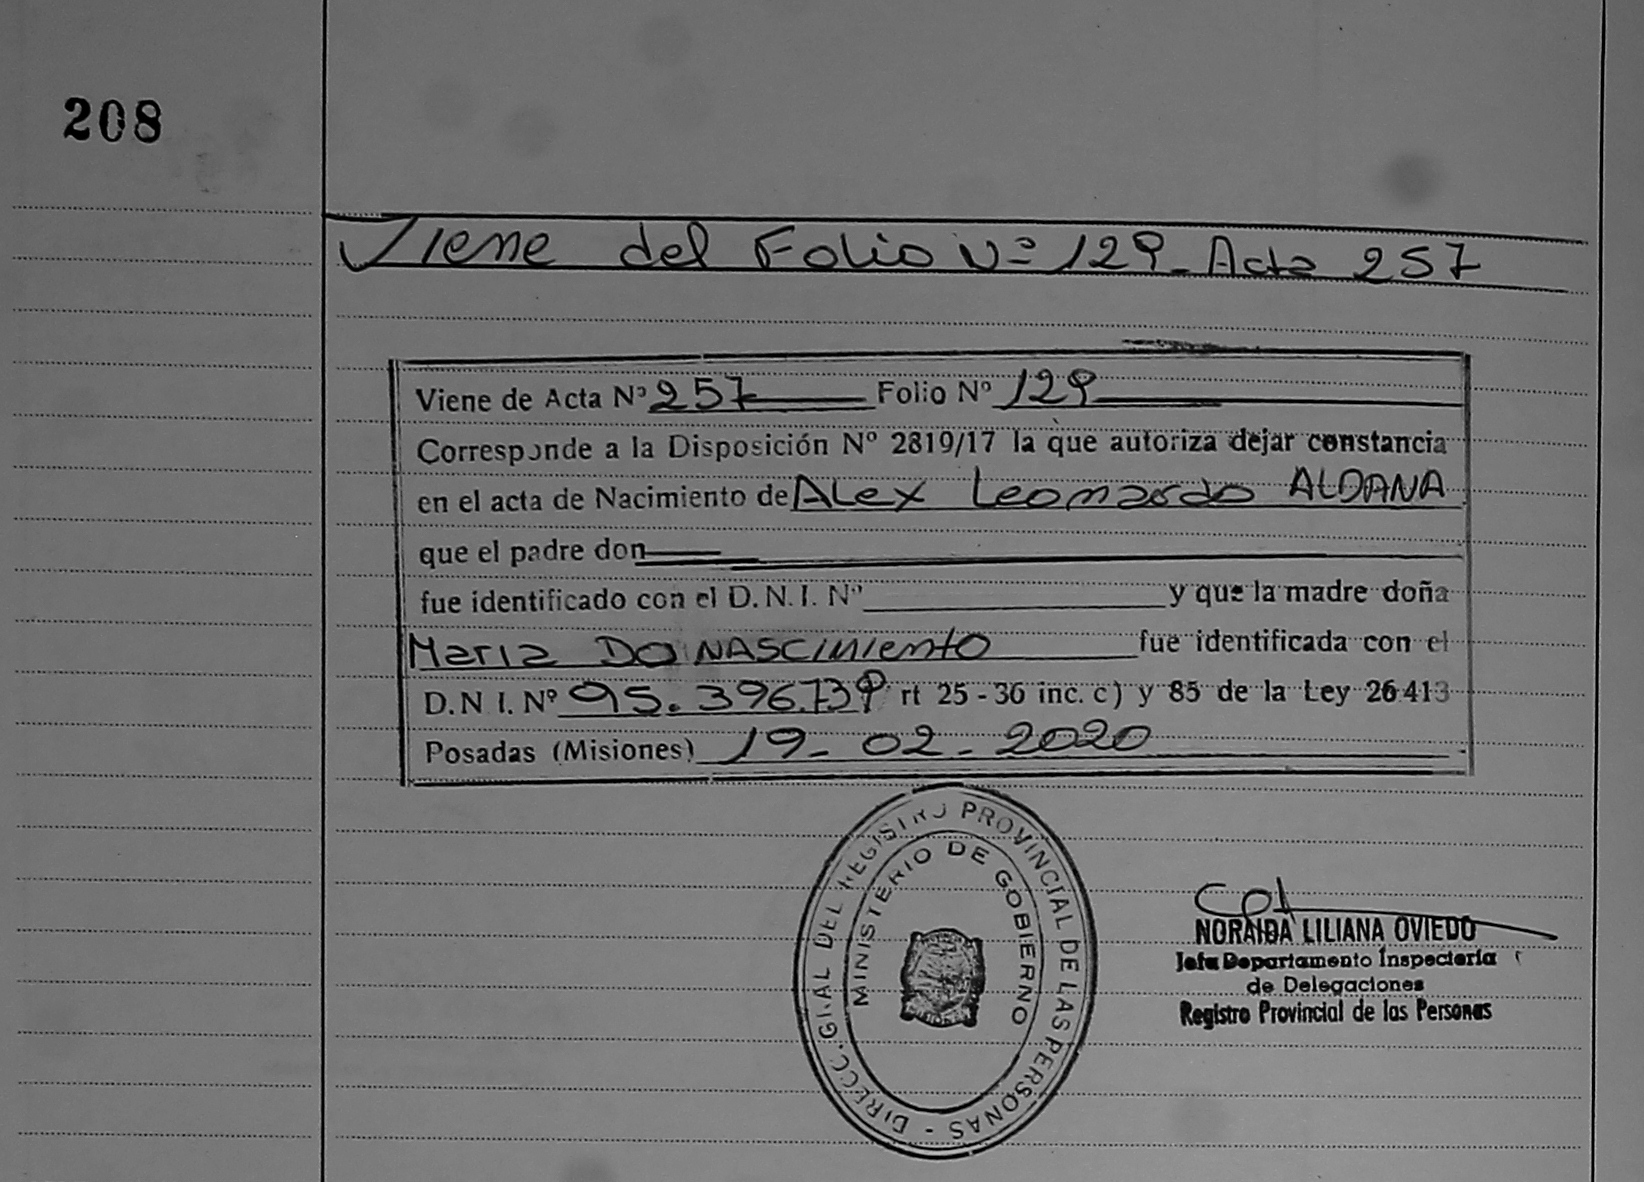 208
Viene del Folio Nº 129_ Acta 257
Viene de Acta Nº 257 Folio Nº 129
Corresponde a la Disposición Nº 2819/17 la que autoriza dejar constancia
en el acta de Nacimiento de ALex Leonardo ALDANA
que el padre don
fue identificado con el D.N.I. Nº y que la madre doña
Maria DO NASCIMIENTO fue identificada con el
D.N I. Nº 95.396.739 rt 25 - 36 inc. c) y 85 de la Ley 26 413
Posadas (Misiones) 19- 02 - 2020
DIRECC. GRAL DEL REGISTRO PROVINCIAL DE LAS PERSONAS -
MINISTERIO DE GOBIERNO
NORAIDA LILIANA OVIEDO
Jefa Departamento Inspectoria
de Delegaciones
Registro Provincial de las Personas